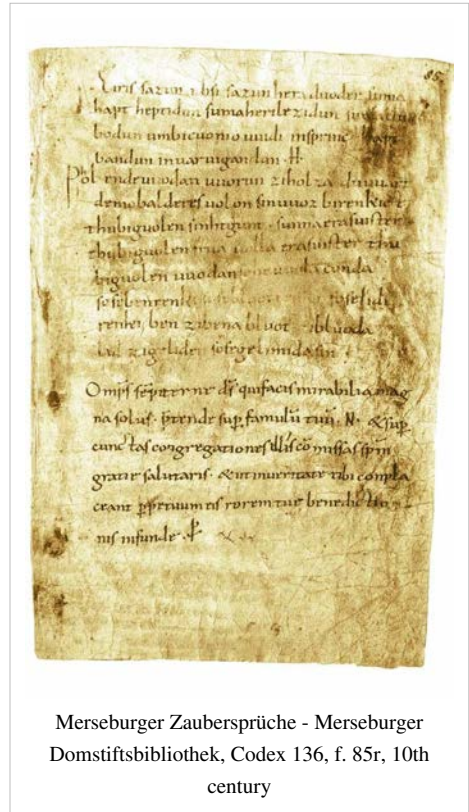 85.
Eiris sazun idisi sazun hera duoder suma
hapt heptidun sumaherilezidun
bodun umbicuonio uuidi insprinc hapt
bandun inuar uigandun .H.
Phol endeuuodan uuorun ziholza duuuart
demobalderes uolon sinuuoz birenkict
thubiguolen sinhtgunt . sunnaerasuister
thubiguolen friia uolla erasuister thu
biguolen uuodan uuola conda
sosebenrenki soselidi
renki ben zibena bluot zibluoda
lid zigeliden sosegelimida sin
Omp̄s sēpiterne d̄s quifacis mirabilia mag
na solus . p̄tende sup̱ famulū tuū . N . & sup̱
cunctas congregationes illis cōmissas sp̄m
gratie salutaris . & utinueritate tibi compla
ceant p̱petuum eis rorem tue benedictio
nis infunde .
Merseburger Zaubersprüche - Merseburger
Domstiftsbibliothek, Codex 136, f. 85r, 10th
century